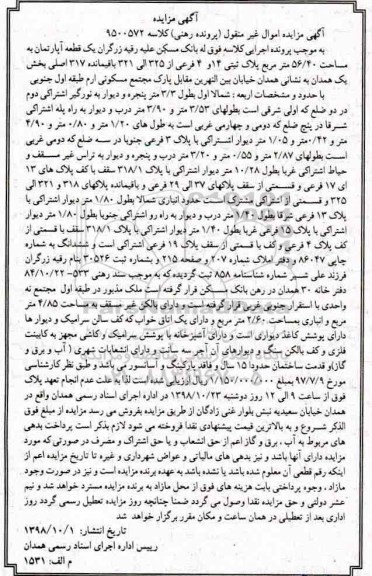 آگهی مزایده
آگهی مزایده اموال غیر منقول (پرونده رهنی) کلاسه ۹۵۰۰۵۷۲
به موجب پرونده اجرایی کلاسه فوق له بانک مسکن علیه رقیه زرگران یک قطعه آپارتمان به
مساحت ۵۶/۴۰ متر مربع پلاک ثبتی ۱۴ و ۴ فرعی از ۳۲۵ الی ۳۲۱ باقیمانده ۳۱۷ اصلی بخش
یک همدان به نشانی همدان خیابان بین النهرین مقابل پارک مجتمع مسکونی ارم طبقه اول جنوبی
با حدود و مشخصات اربعه : شمالا اول بطول ۳/۳ متر پنجره و دیوار به نورگیر اشتراکی دوم
در دو ضلع که اولی شرقی است بطولهای ۳/۵۳ متر و ۳/۹۰ متر درب و دیوار به راه پله اشتراکی
شرقا در پنج ضلع که دومی و چهارمی غربی است به طول های ۱/۲۰ متر و ۰/۸۰ متر و ۴/۹۰
متر و ۰/۴۲ متر و ۱/۰۵ متر دیوار اشتراکی با پلاک ۳ فرعی جنوبا در سه ضلع که دومی غربی
است بطولهای ۲/۸۷ متر و ۰/۵۵ متر و ۳/۲۰ متر درب و پنجره و دیوار به تراس غیر مسقف و
حیاط اشتراکی غربا بطول ۱۰/۲۸ متر دیوار اشتراکی با پلاک ۳۱۸/۱ سقف با کف پلاک های ۱۳
ای ۱۷ فرعی و قسمتی از سقف پلاکهای ۳۷ الی ۲۹ فرعی و باقیمانده پلاکهای ۳۱۸ و ۳۲۱ الی
۳۲۵ و قسمتی از اشتراکی مشترک است حدود انباری شمالا بطول ۱/۸۰ متر دیوار اشتراکی با
پلاک ۱۳ فرعی شرقا بطول ۱/۴۰ متر درب و دیوار به راه رو اشتراکی جنوبا بطول ۱/۸۰ متر دیوار
اشتراکی با پلاک ۱۵ فرعی غربا بطول ۱/۴۰ متر دیوار اشتراکی با پلاک ۳۱۸/۱ سقف با قسمتی از
کف پلاک ۴ فرعی و کف با قسمتی از سقف پلاک ۱۹ فرعی اشتراکی است و ششدانگ به شماره
چاپی ۸۶۰۴۷ و دفتر املاک شماره ۲۰۷ و صفحه ۲۱۵ و بشماره ثبت ۳۰۵۲۶ بنام رقیه زرگران
فرزند علی شیر شماره شناسنامه ۸۵۸ ثبت گردیده که به موجب سند رهنی ۵۳۳ - ۸۴/۱۰/۲۲
دفتر خانه ۳۰ همدان در رهن بانک مسکن قرار گرفته است ملک مذبور در طبقه اول مجتمع نه
واحدی با استقرار جنوبی غربی قرار گرفته است و دارای بالکن غیر مسقف به مساحت ۴/۸۵ متر
مربع و انباری بمساحت ۲/۶۰ متر مربع و دارای یک اتاق خواب که کف سالن سرامیک و دیوار ها
دارای پوشش کاغذ دیواری است و دارای آشپزخانه با پوشش سرامیک و کاشی مجهز به کابینت
فلزی و کف بالکن سنگ و دیوارهای آن آجر سه سانت و دارای انشعابات شهری ( آب و برق و
گاز) و قدمت ساختمان حدود ۱۵ سال و فاقد پارکینگ و آسانسور می باشد و طبق نظر کارشناسی
مورخ ۹۷/۷/۹ بمبلغ ۱/۱۵۰/۰۰۰/۰۰۰ ریال ارزیابی شده است لذا به علت عدم انجام تعهد پلاک
فوق از ساعت ۹ الی ۱۲ روز دوشنبه ۱۳۹۸/۱۰/۲۳ در اداره اجرای اسناد رسمی همدان واقع در
همدان خیابان سعیدیه نبش بلوار غنی زادگان از طریق مزایده بفروش می رسد مزایده از مبلغ فوق
الذکر شروع و به بالاترین قیمت پیشنهادی نقدا فروخته می شود لازم بذکر است پرداخت بدهی
های مربوط به آب ، برق و گاز اعم از حق انشعاب و یا حق اشتراک و مصرف در صورتی که مورد
مزایده دارای آنها باشد و نیز بدهی های مالیاتی و عوارض شهرداری و غیره تا تاریخ مزایده اعم از
اینکه رقم قطعی آن معلوم شده باشد یا نشده باشد به عهده برنده مزایده است و نیز در صورت وجود
مازاد ، وجوه پرداختی بابت هزینه های فوق از محل مازاد به برنده مزایده مسترد خواهد شد و نیم
عشر دولتی و حق مزایده نقدا وصول می گردد ضمنا چنانچه روز مزایده تعطیل رسمی گردد روز
اداری بعد از تعطیلی در همان ساعت و مکان مقرر برگزار خواهد شد
تاریخ انتشار: ۱۳۹۸/۱۰/۱
رییس اداره اجرای اسناد رسمی همدان
م الف: ۱۵۳۱